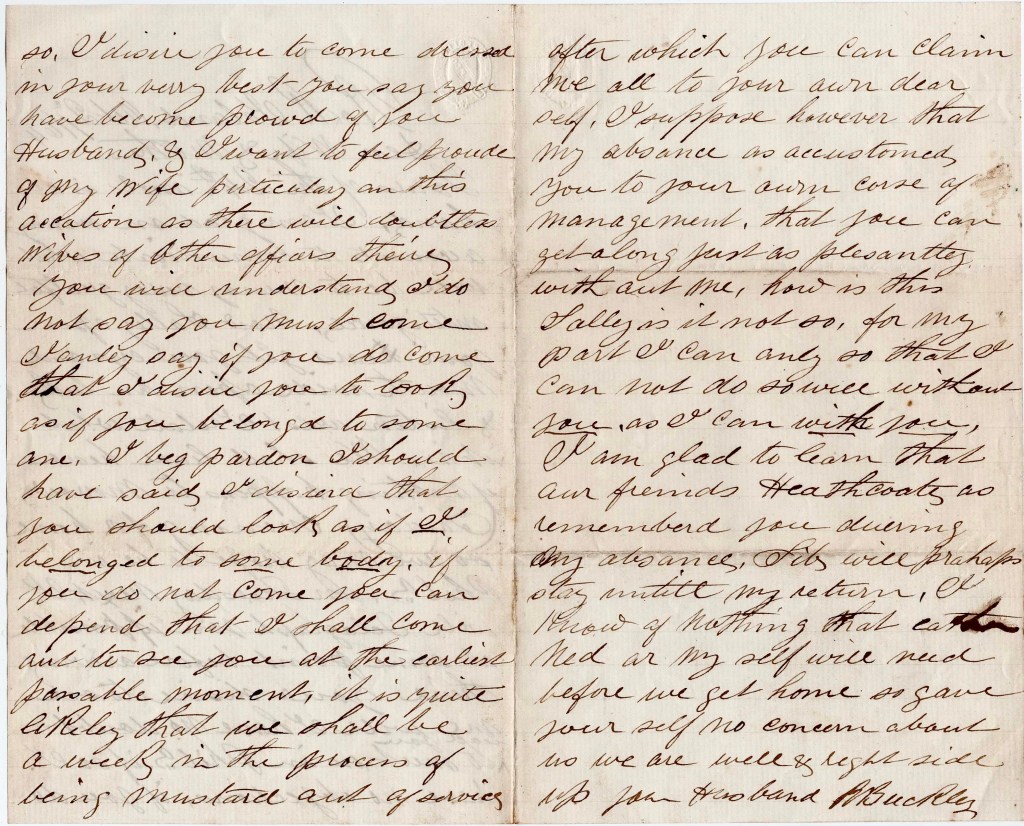 so, I disire you to come dressed
in your verry best you say you
have become prowd of you
Husband, & I want to feel proude
of my Wife pirticulary on this
accation as there will doubtless
Wives of Other officirs theire,
You will understand, I do
not say you must come
I onley say if you do come
that I disire you to look,
as if you belongd to some
one. I beg pardon I should
have said, I disierd that
you should look as if I
belonged to some body. if
you do not come you can
depend that I shall come
out to see you at the earliest
possable moment, it is quite
likeley that we shall be
a week, in the process of
being mustard out of service
after which you can claim
me all to your own dear
self. I suppose however that
my absance as accustomed,
you to your own corse of
management, that you can
get along just as plesantley
with out me, how is this
Salley is it not so, for my
part I can only so that I
can not do so will without
you, as I can with you,
I am glad to learn that
our freinds Heathcoate, as
rememberd you duering
my absance, Sib, will prahaps
stay untill my return, I
know of nothing that
Ned or my self will need
before we get home so gave
your self no concern about
us we are well & right side
up your Husband Buckley